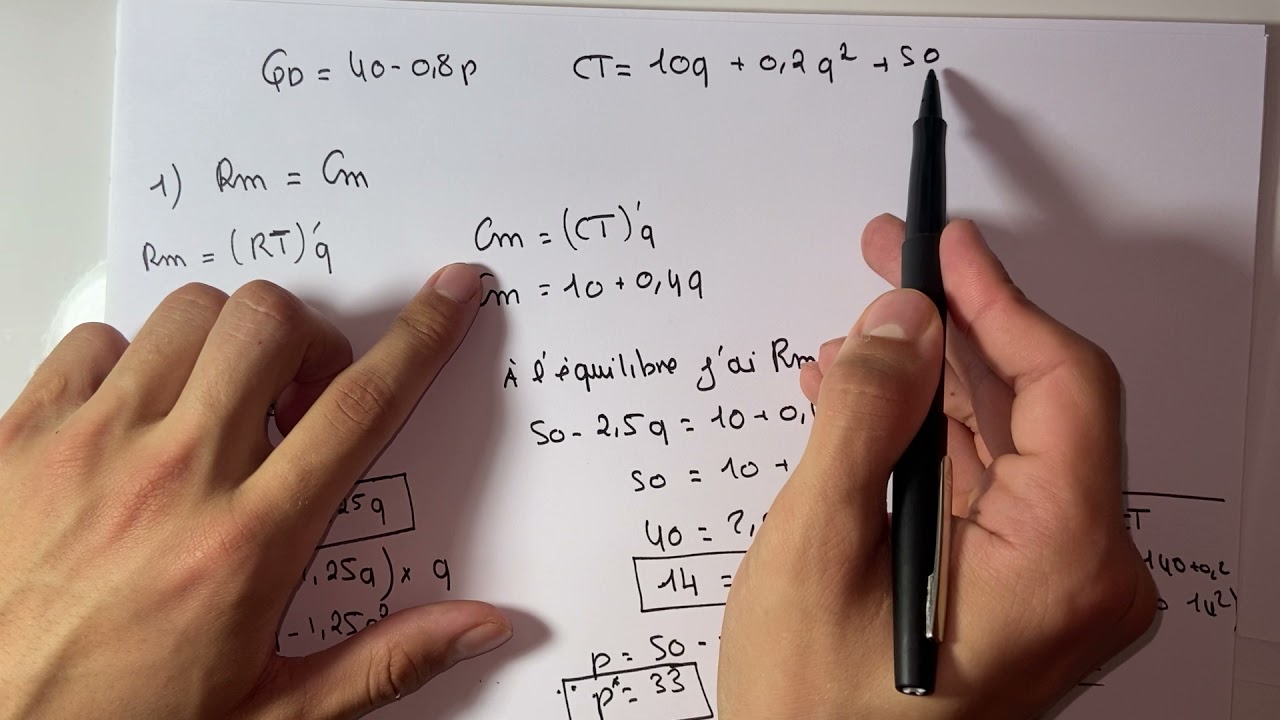 QD = 40 - 0,8p
CT = 10q + 0,2q² + 50
1) Rm = Cm
Rm = (RT)'q
Cm = (CT)'q
Cm = 10 + 0,4q
À l'équilibre j'ai Rm
50 - 2,5q = 10 + 0,
50 = 10 +
40 = 2,
14 =
p = 50 -
p* = 33
25q
,25q) × q
- 1,25q²
140 + 0,2
14²)